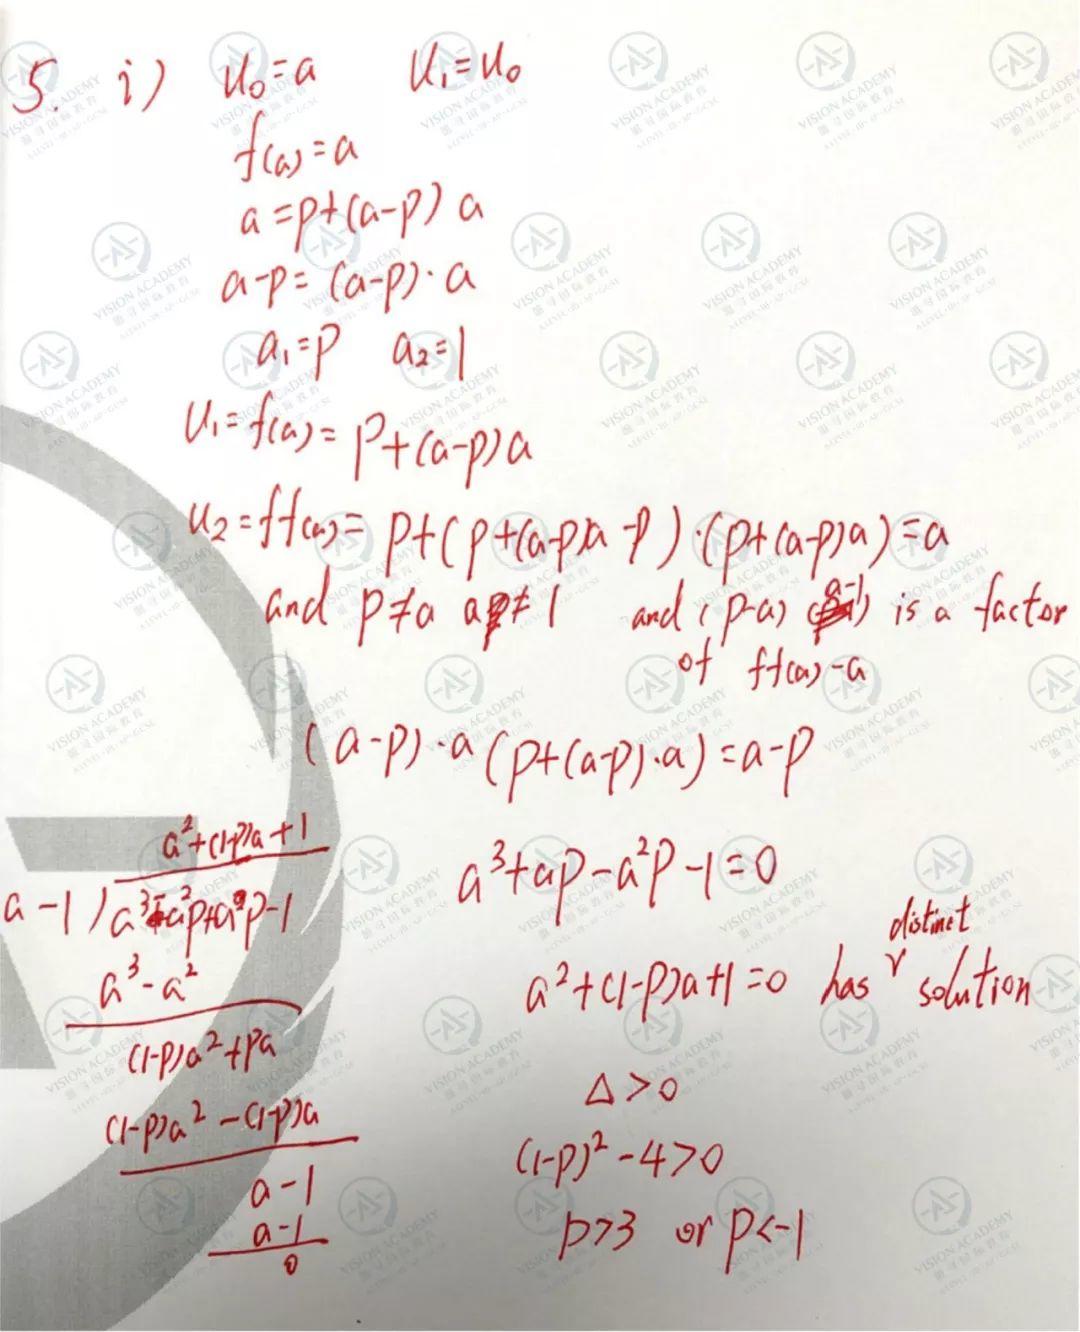 5. i) u₀=a u₁=u₀
f(a)=a
a=p+(a-p) a
a-p= (a-p)·a
a₁=p a₂=1
u₁=f(a)= p+(a-p)a
u₂=ff(a)= p+(p+(a-p)a-p)·(p+(a-p)a)=a
and p≠a a≠1 and (p-a) (a-1) is a factor
of ff(a)-a
(a-p)·a (p+(a-p)·a)=a-p
a³+ap-a²p-1=0
a²+(1-p)a+1=0 has distinct solution
Δ>0
(1-p)²-4>0
p>3 or p<-1
a²+(1-p)a+1
a-1)a³-a²p+ap-1
a³-a²
(1-p)a²+pa
(1-p)a²-(1-p)a
a-1
a-1
0
VISION ACADEMY
ALEVEL·IB·AP·GCSE